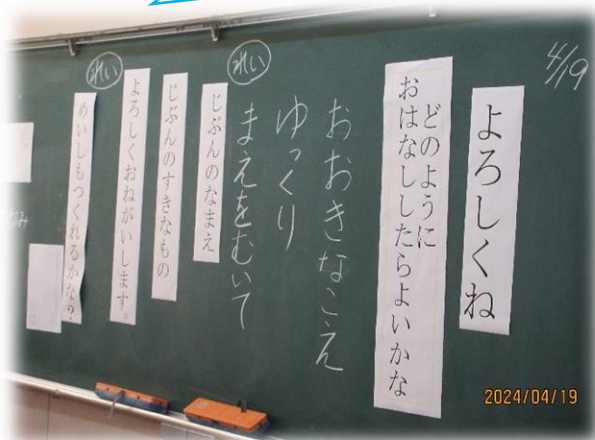 4/19
よろしくね
どのように
おはなししたらよいかな
おおきなこえ
ゆっくり
まえをむいて
れい
じぶんのなまえ
じぶんのすきなもの
よろしくおねがいします。
れい
めいしもつくれるかな?
2024/04/19